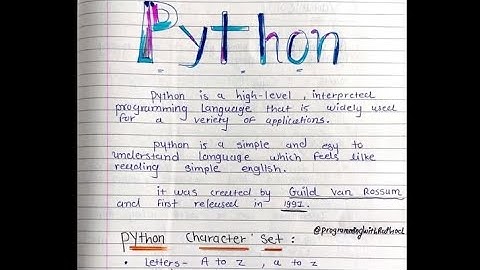 Python
python is a high-level, interpreted
programming language that is widely used
for a veriety of applications.
python is a simple and esy to
understand language which feels like
reading simple english.
it was created by Guild Van Rossum
and first released in 1991.
@programmingwithRathod
Python Character Set :
• Letters - A to Z, a to z